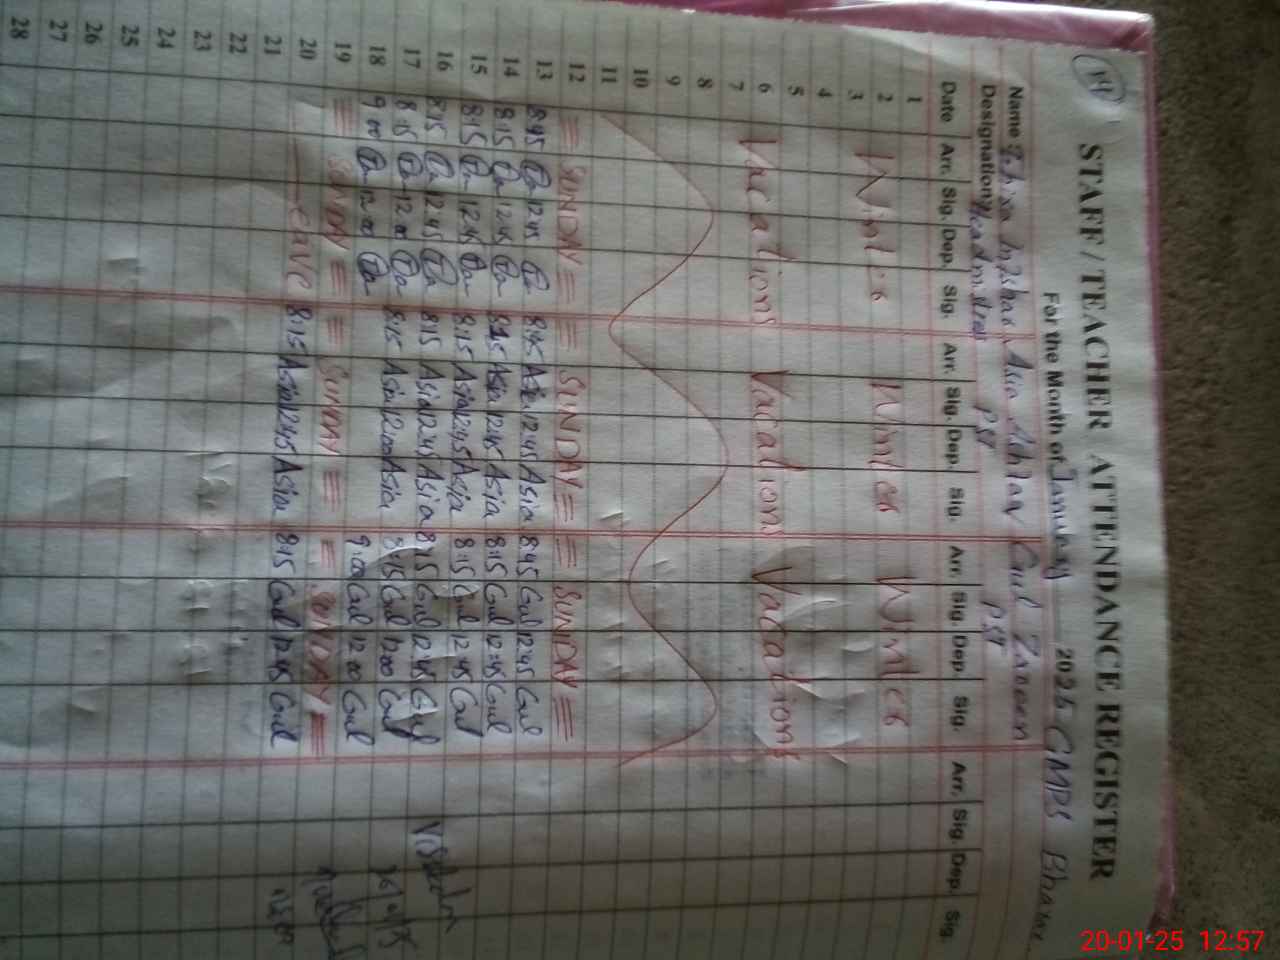 14
STAFF / TEACHER ATTENDANCE REGISTER
For the Month of January 2025 GMPS
Name Asia Gul Zareen
Designation Headmistress PST PST
Date Arr. Sig. Dep. Sig. Arr. Sig. Dep. Sig. Arr. Sig. Dep. Sig. Arr. Sig. Dep. Sig.
1
2 Winter Winter Winter
3
4
5
6 Vacations Vacations Vacations
7
8
9
10
11
12 SUNDAY SUNDAY SUNDAY
13 8:45 12:45 8:45 Asia 12:45 Asia 8:45 Gul 12:45 Gul
14 8:15 12:45 8:15 Asia 12:45 Asia 8:15 Gul 12:45 Gul
15 8:15 12:45 8:15 Asia 12:45 Asia 8:15 Gul 12:45 Gul
16 8:15 12:45 8:15 Asia 12:45 Asia 8:15 Gul 12:45 Gul
17 8:15 12:00 8:15 Asia 12:00 Asia 8:15 Gul 12:00 Gul
18 9:00 12:00 9:00 Gul 12:00 Gul
19 SUNDAY SUNDAY SUNDAY
20 Leave 8:15 Asia 12:45 Asia 8:15 Gul 12:45 Gul
21
22
23
24
25
26
27
28
20-01-25 12:57